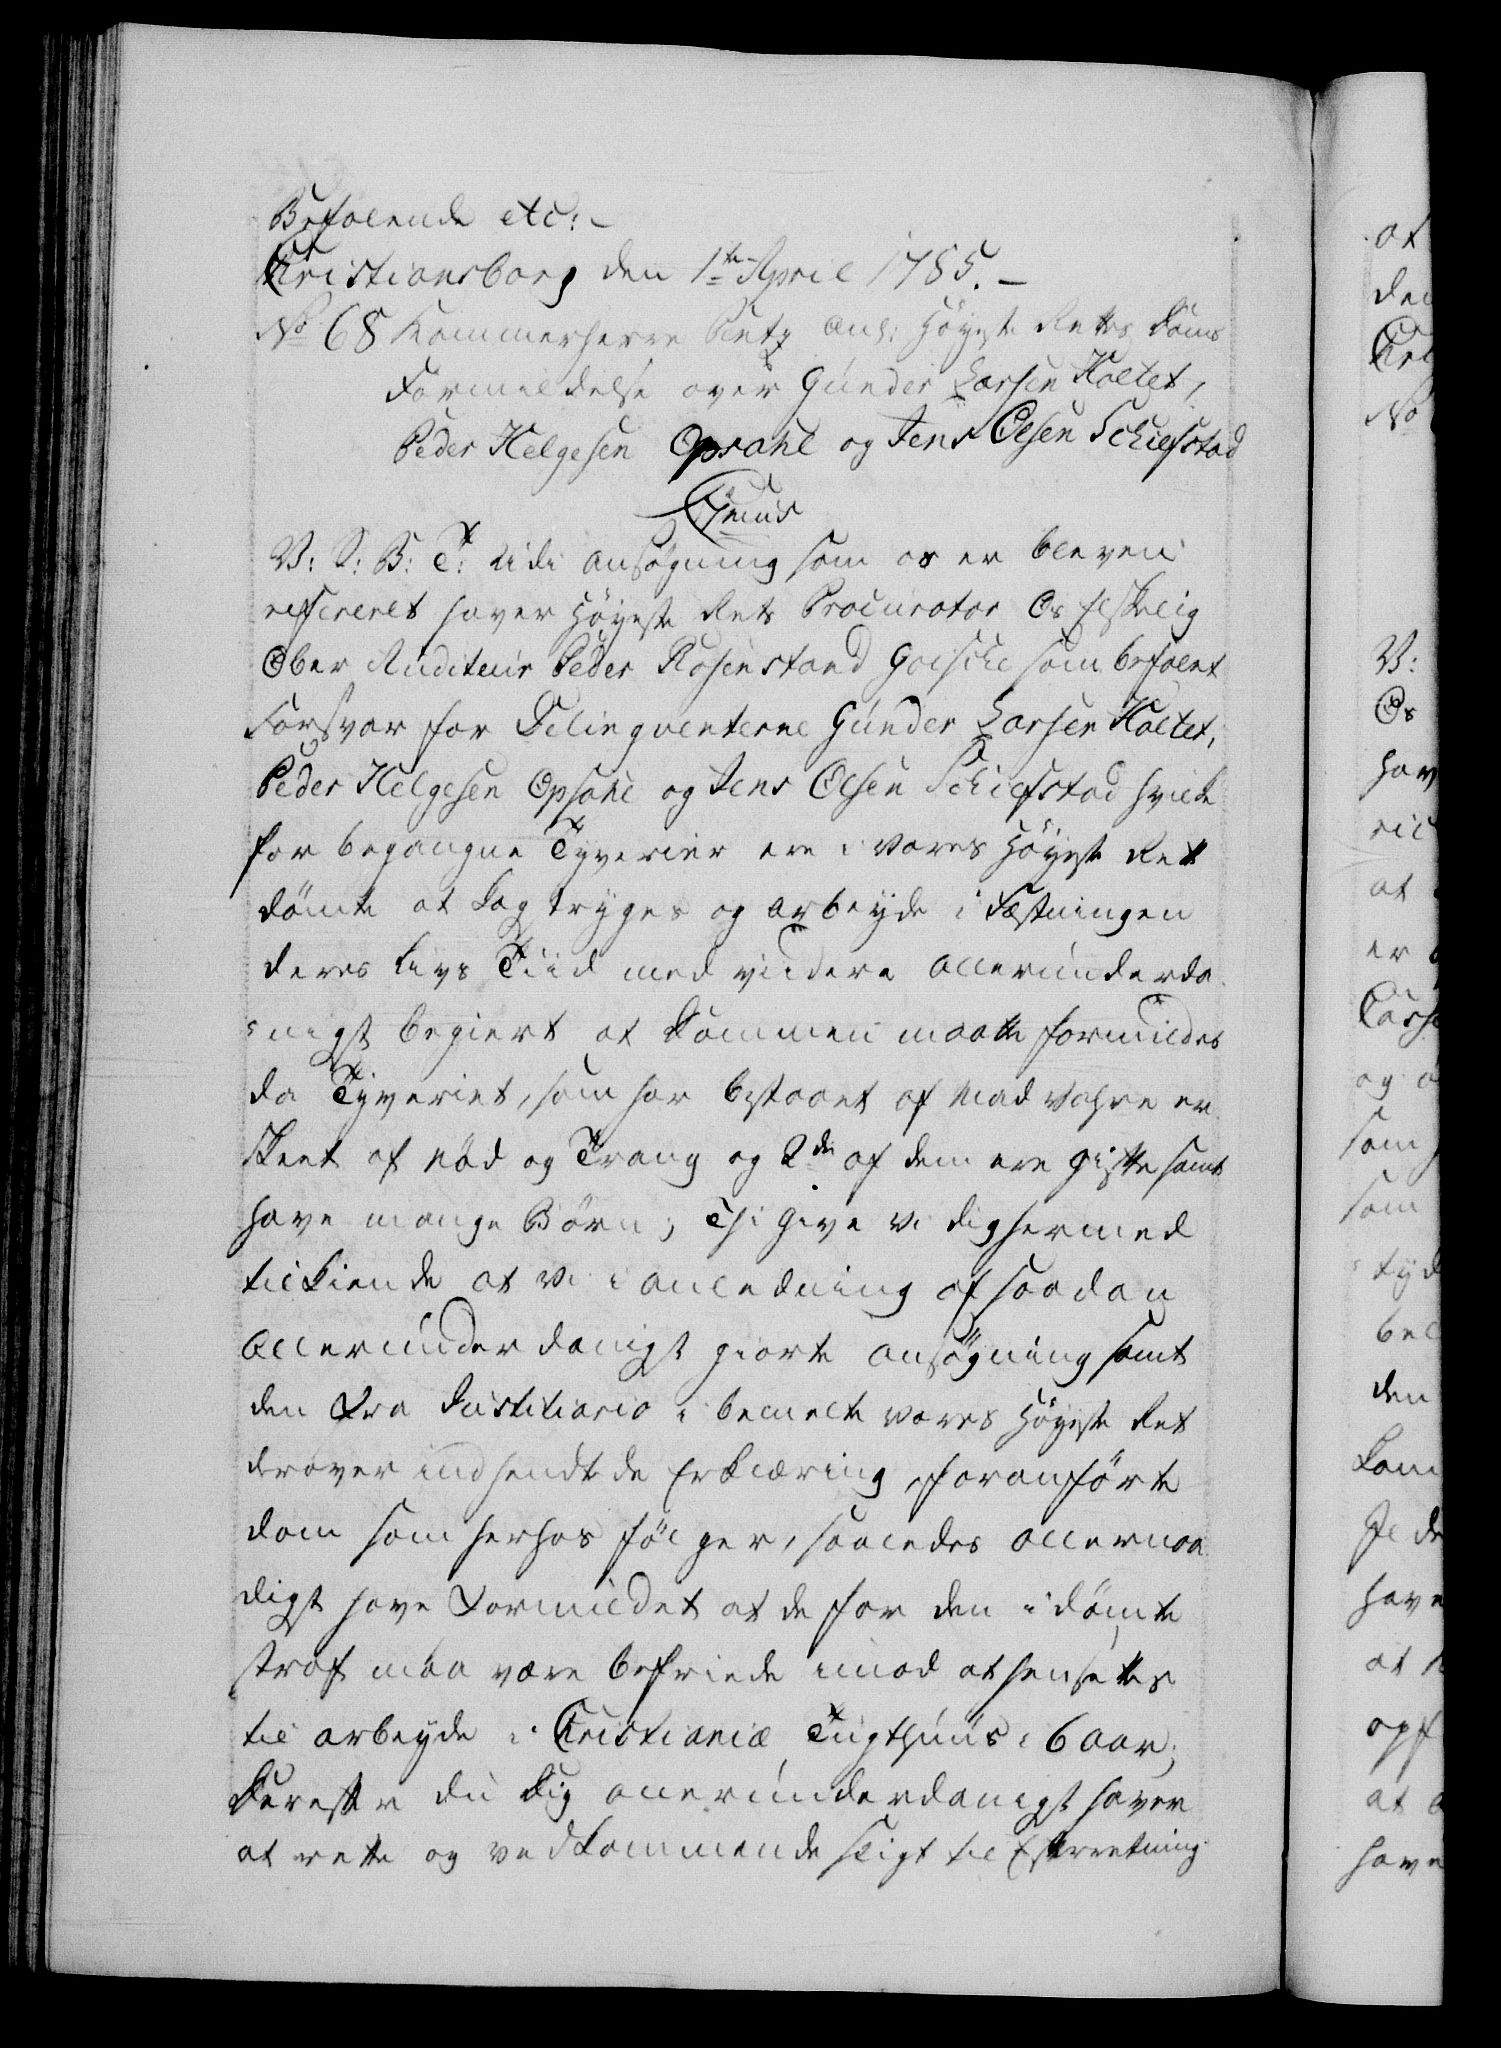 Befalende etc:-
Christiansborg den 1te April 1785.-
No 68 Kammerherre Pentz anl: Höyeste Retts Doms
Formildelse over Gunder Larsen Holtet,
Peder Helgesen Opsahl og Jens Olsen Schiefstad
V: S: B: T: Udi Ansøgning som os er bleven
refereret haver Höyeste Rets Procurator Os Elskelig
Ober Auditeur Peder Rosenstand Goische som befalet
Forsvar for Delinqventerne Gunder Larsen Holtet,
Peder Helgesen Opsahl og Jens Olsen Schiefstad hvilke
for begangne Tyverier ere i Vores Höyeste Ret
dömte at Kagstryges og arbeyde i Fæstningen
deres Livs Tiid med viidere allerunderda
-nigst begiert at Dommen maatte formildes
da Tyveriet, som har bestaaet af Mad Vahre er
skeet af Nød og Trang og 2de af dem ere gifte samt
have mange Børn; Thi give Vi dig hermed
tilkiende at Vi i anledning af saadan
allerunderdanigst giorte ansøgning samt
den Fra Justitiario i bemelte Vores Höyeste Ret
derover indhendtede Erklæring, foranførte
dom som herhos følger, saaledes allernaa
digst have Formildet at de for den idømte
straf maa være befriede imod at hensættes
til arbeyde i Christiania Tugthuus i 6 aar;
Derefter du Dig allerunderdanigst haver
at rette og vedkommende sligt til Efterretning